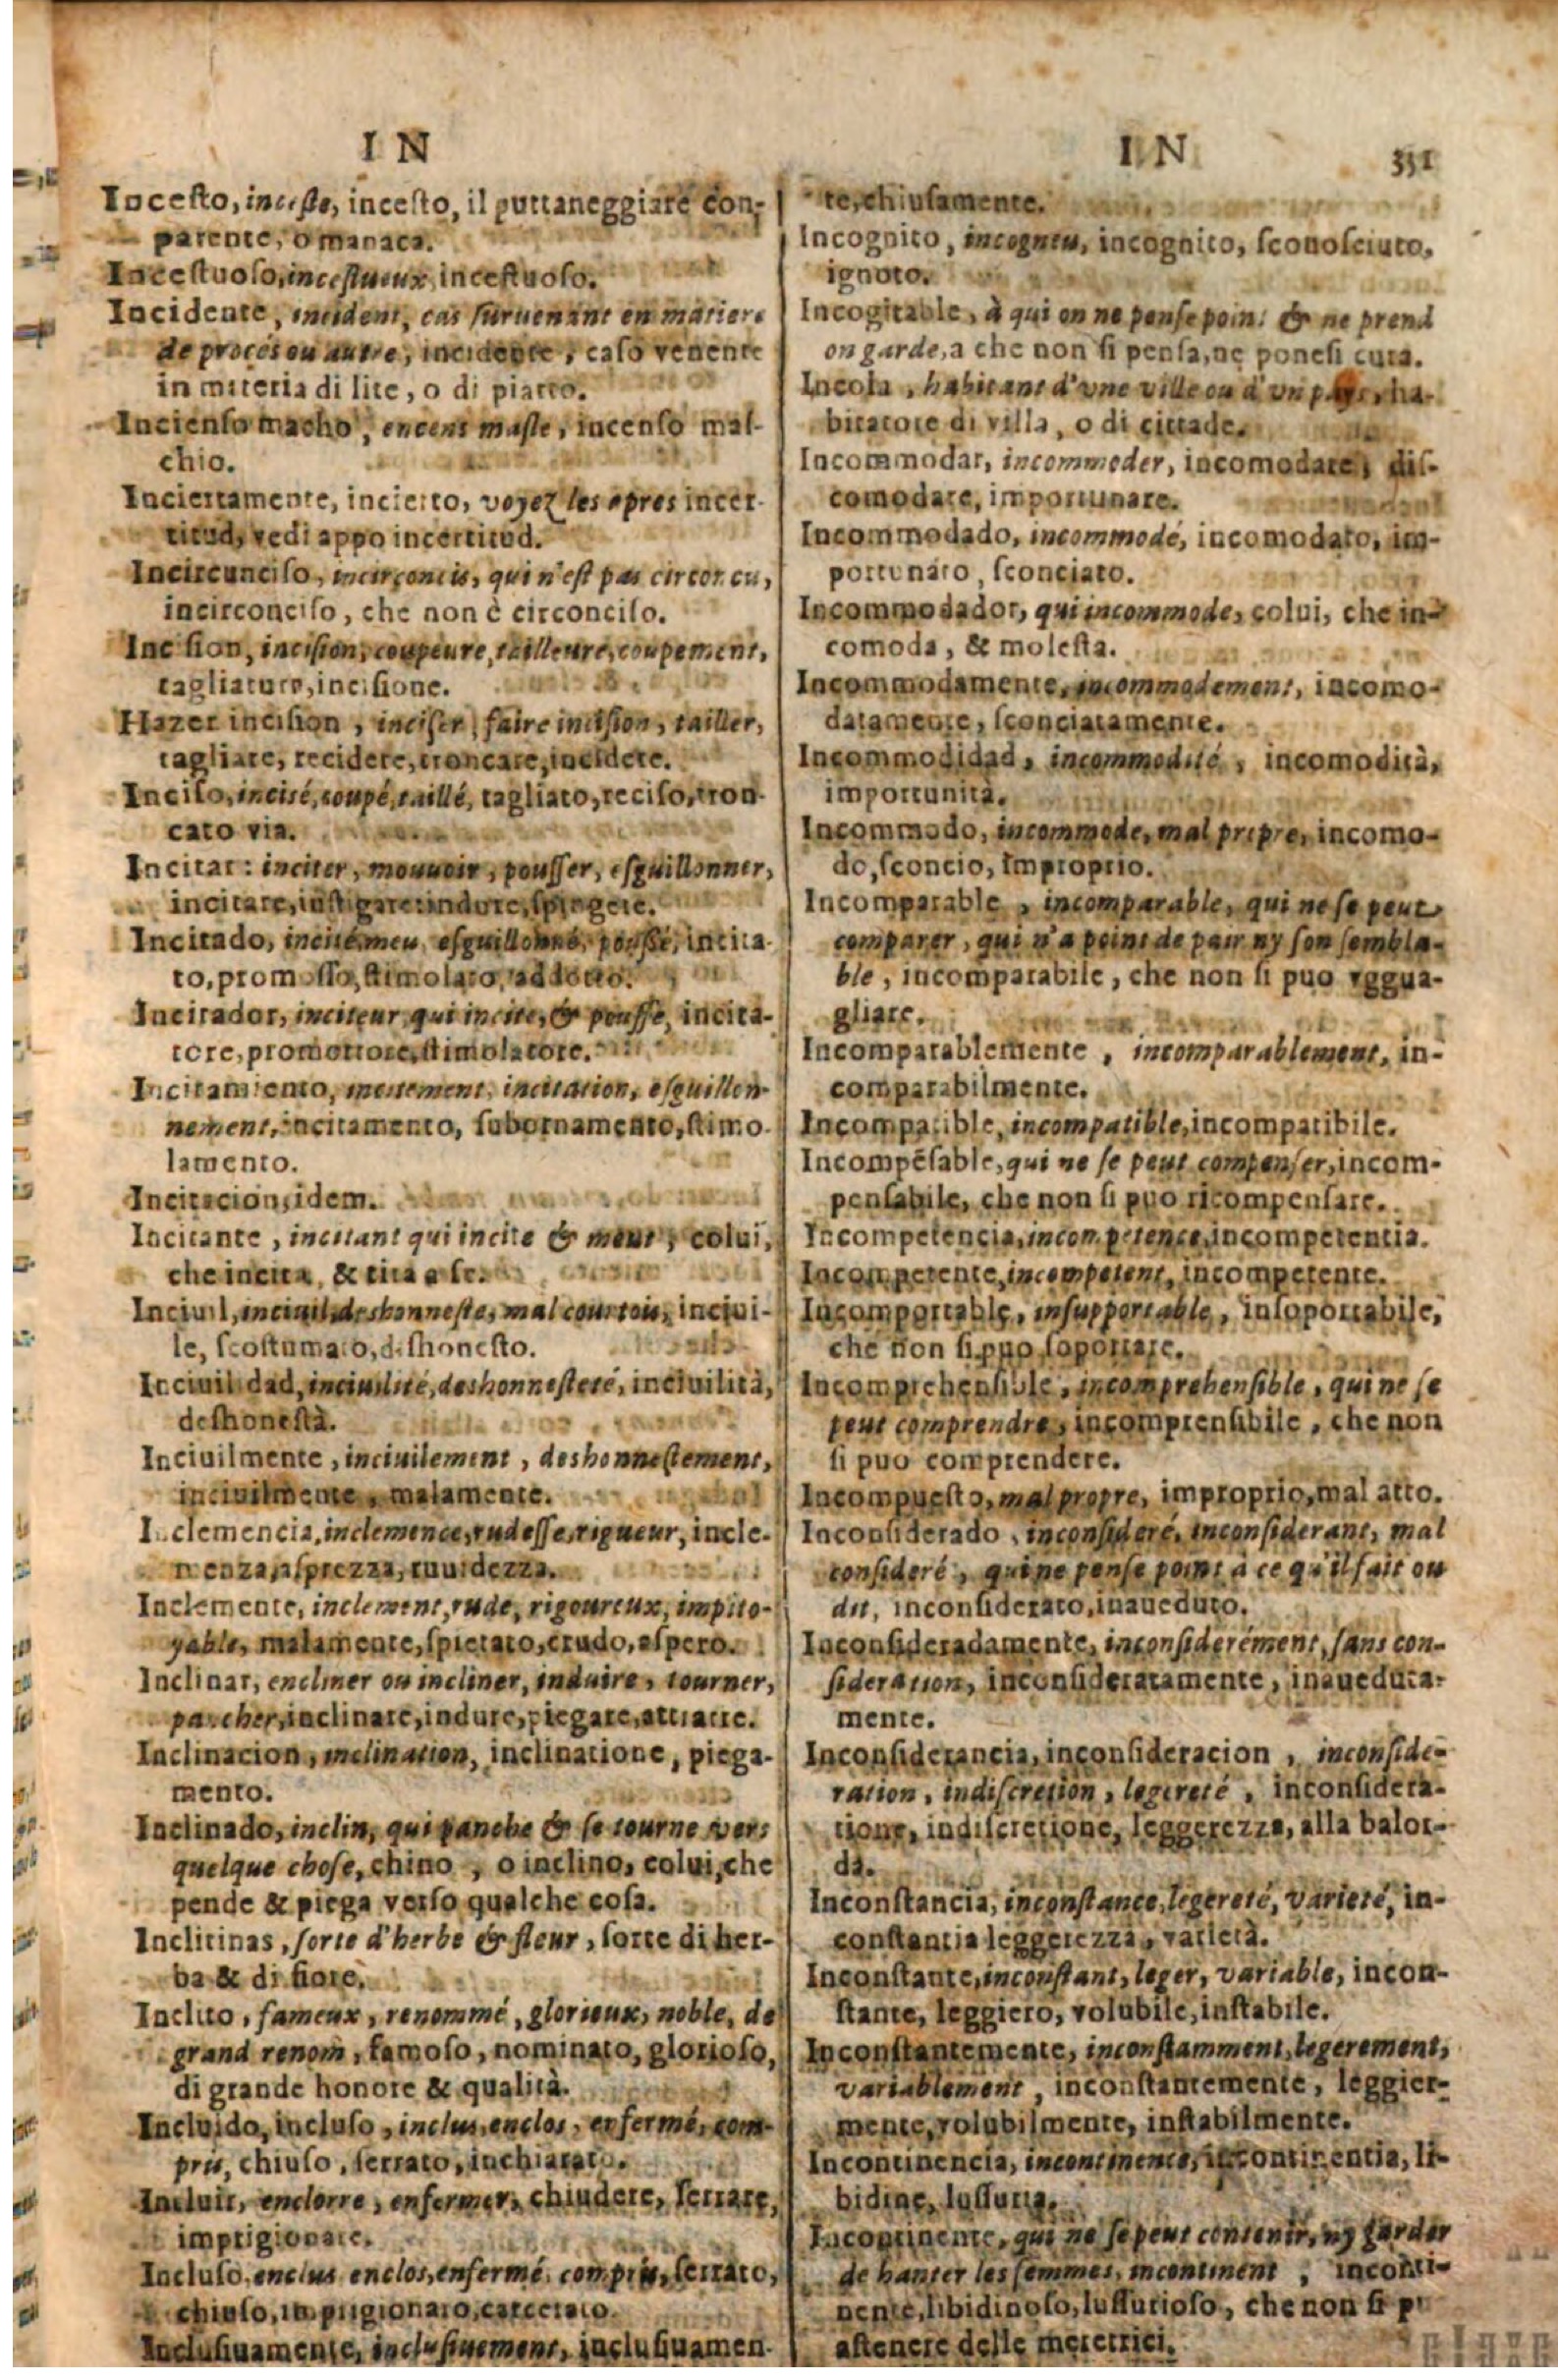 I N
Incesto, inceste, incesto, il puttaneggiare con
parente, o manaca.
Incestuoso, incestueux, incestuoso.
Incidente, incident, cas suruenant en matiere
de procés ou autre, incidente, caso venente
in materia di lite, o di piatto.
Incienso macho, encens masle, incenso mas-
chio.
Inciertamente, incierto, voyez les apres incer-
titud, vedi appo incertitud.
Incircunciso, incirconcis, qui n'est pas circoncu,
incirconciso, che non è circonciso.
Incision, incision, coupeure, tailleure, coupement,
tagliature, incisione.
Hazer incision, inciser, faire incision, tailler,
tagliare, recidere, troncare, incidere.
Inciso, incisé, coupé, taillé, tagliato, reciso, tron-
cato via.
Incitar: inciter, mouuoir, pousser, esguillonner,
incitare, instigare: indure, spingere.
Incitado, incité, meu, esguillonné, poussé, incita-
to, promosso, stimolato, addotto.
Incitador, inciteur qui incite, & pousse, incita-
tore, promottore, stimolatore.
Incitamiento, incitement, incitation, esguillon-
nement, incitamento, subornamento, stimo-
lamento.
Incitacion, idem.
Incitante, incitant qui incite & meut, colui,
che incita, & tira a se.
Inciuil, inciuil, deshonneste, mal courtois, inciui-
le, scostumato, dishonesto.
Inciuilidad, inciuilité, deshonnesteté, inciuilità,
deshonestà.
Inciuilmente, inciuilement, deshonnestement,
inciuilmente, malamente.
Inclemencia, inclemence, rudesse, rigueur, incle-
menza, asprezza, ruuidezza.
Inclemente, inclement, rude, rigoureux, impito-
yable, malamente, spietato, crudo, aspero.
Inclinar, encliner ou incliner, induire, tourner,
pancher, inclinare, indure, piegare, attraere.
Inclinacion, inclination, inclinatione, piega-
mento.
Inclinado, inclin, qui panche & se tourne vers
quelque chose, chino, o inclino, colui, che
pende & piega verso qualche cosa.
Inclitinas, sorte d'herbe & fleur, sorte di her-
ba & di fiore.
Inclito, fameux, renommé, glorieux, noble, de
grand renom, famoso, nominato, glorioso,
di grande honore & qualità.
Incluido, incluso, inclus, enclos, enfermé, com-
pris, chiuso, serrato, inchiarato.
Incluir, enclorre, enfermer, chiudere, serrare,
imprigionare.
Incluso, enclus enclos, enfermé, compris, serrato,
chiuso, imprigionato, carcerato.
Inclusiuamente, inclusiuement, inclusiuamen-
I N 351
te, chiusamente.
Incognito, incogneu, incognito, sconosciuto,
ignoto.
Incogitable, à qui on ne pense point & ne prend
on garde, a che non si pensa, ne ponesi cura.
Incola, habitant d'vne ville ou d'vn pays, ha-
bitatore di villa, o di cittade.
Incommodar, incommoder, incomodare, dis-
comodare, importunare.
Incommodado, incommodé, incomodato, im-
portunato, sconciato.
Incommodador, qui incommode, colui, che in-
comoda, & molesta.
Incommodamente, incommodement, incomo-
datamente, sconciatamente.
Incommodidad, incommodité, incomodità,
importunità.
Incommodo, incommode, mal propre, incomo-
do, sconcio, improprio.
Incomparable, incomparable, qui ne se peut
comparer, qui n'a point de pair ny son sembla-
ble, incomparabile, che non si puo vggua-
gliare.
Incomparablemente, incomparablement, in-
comparabilmente.
Incompatible, incompatible, incompatibile.
Incompẽsable, qui ne se peut compenser, incom-
pensabile, che non si puo ricompensare.
Incompetencia, incompetence, incompetentia.
Incompetente, incompetent, incompetente.
Incomportable, insupportable, insoportabile,
che non si puo soportare.
Incomprehensible, incomprehensible, qui ne se
peut comprendre, incomprensibile, che non
si puo comprendere.
Incompuesto, mal propre, improprio, mal atto.
Inconsiderado, inconsideré, inconsiderant, mal
consideré, qui ne pense point à ce qu'il fait ou
dit, inconsiderato, inaueduto.
Inconsideradamente, inconsiderément, sans con-
sideration, inconsideratamente, inaueduta-
mente.
Inconsiderancia, inconsideracion, inconside-
ration, indiscretion, legereté, inconsidera-
tione, indiscretione, leggerezza, alla balor-
da.
Inconstancia, inconstance, legereté, varieté, in-
constantia leggerezza, varietà.
Inconstante, inconstant, leger, variable, incon-
stante, leggiero, volubile, instabile.
Inconstantemente, inconstamment, legerement,
variablement, inconstantemente, leggier-
mente, volubilmente, instabilmente.
Incontinencia, incontinence, incontinentia, li-
bidine, lussuria.
Incontinente, qui ne se peut contenir, ny garder
de hanter les femmes, incontinent, inconti-
nente, libidinoso, lussurioso, che non si p
astenere delle meretrici.